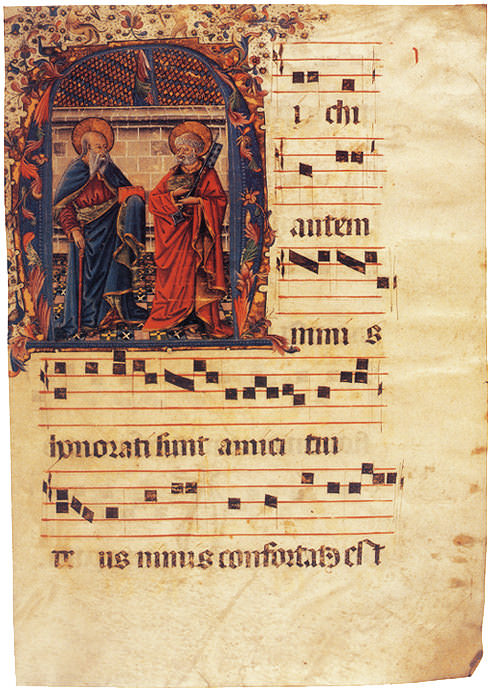 M i chi
autem
nimi s
honorati sunt amici tui
de us nimis confortatꝰ est